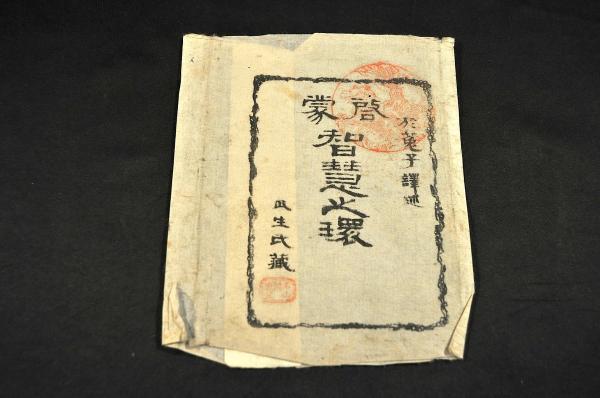 於菟子譯述
啓蒙
智慧之環
瓜生氏藏